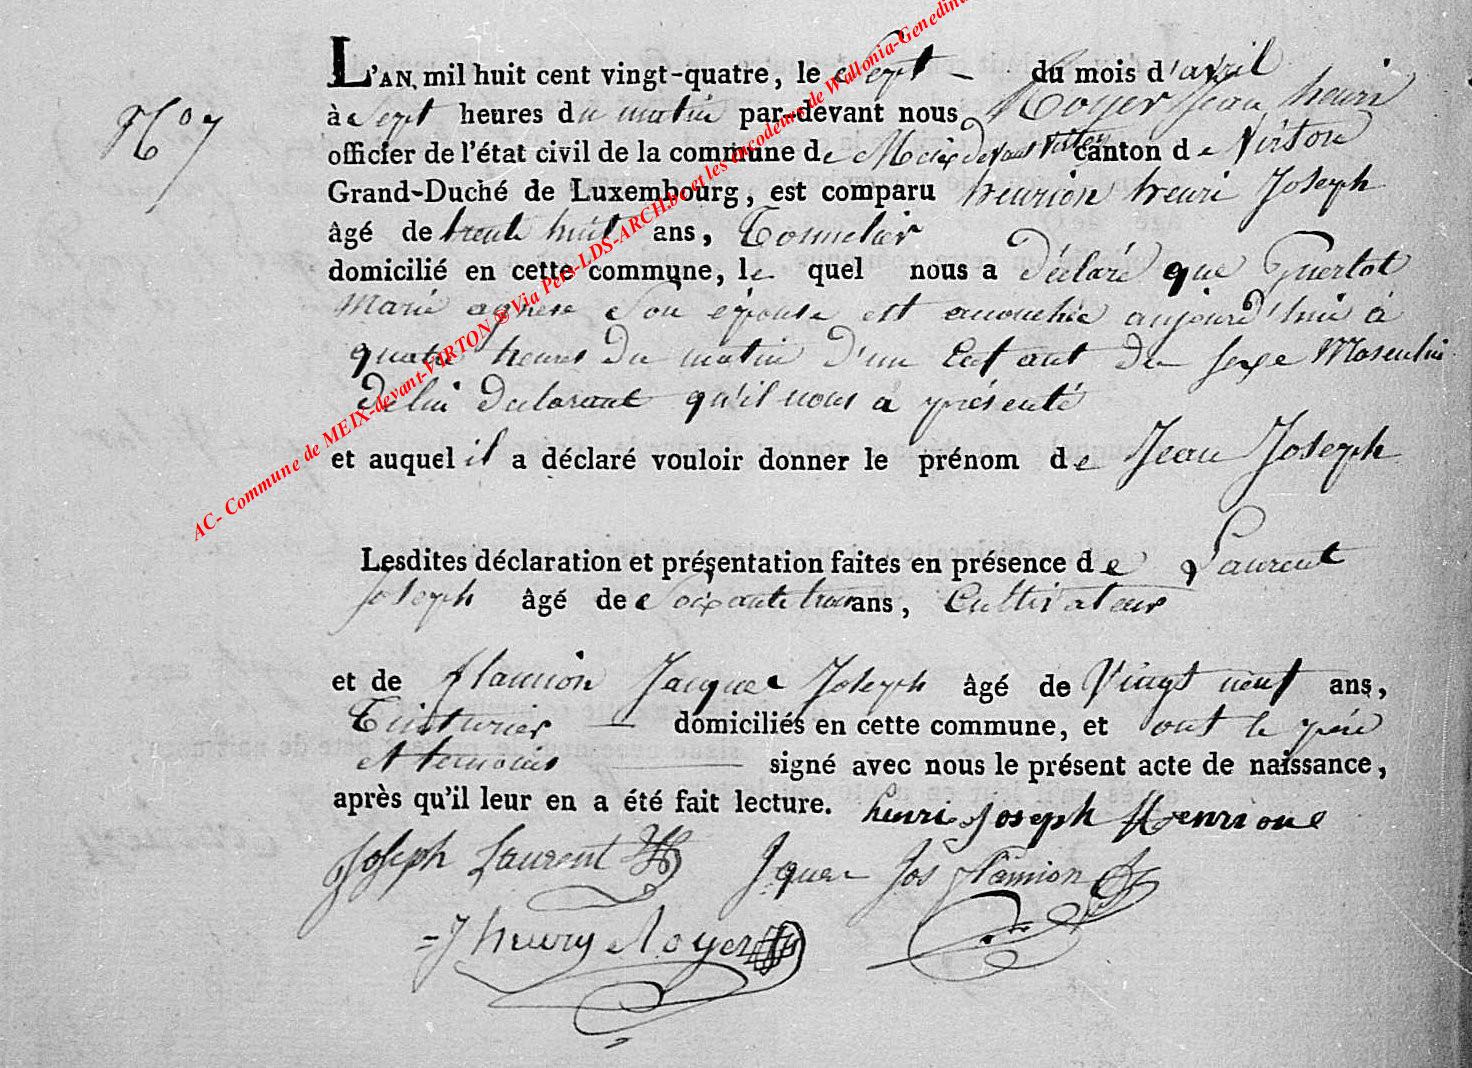 L'AN, mil huit cent vingt-quatre, le Sept du mois d'avril
N.º 7
à Sept heures du matin par-devant nous Royer Jean henri
officier de l'état civil de la commune de Meix devant virton canton de Virton
Grand-Duché de Luxembourg, est comparu henrion henri Joseph
âgé de trente huit ans, Tonnelier
domicilié en cette commune, le quel nous a déclaré que Guertot
Marie agnese Son épouse est accouchée aujourd'hui à
quatre heures du matin d'un Enfant du sexe Masculin
de lui declarant qu'il nous a présenté
et auquel il a déclaré vouloir donner le prénom de Jean Joseph
Lesdites déclaration et présentation faites en présence de Laurent
Joseph âgé de Soixante trois ans, Cultivateur
et de flamion Jacque Joseph âgé de Vingt neuf ans,
Teinturier domiciliés en cette commune, et ont le père
et temoins signé avec nous le présent acte de naissance,
après qu'il leur en a été fait lecture. henri Joseph Henrione
Joseph Laurent Jque Jos flamion
J henry Royer
AC- Commune de MEIX-devant-VIRTON @ Via Pers-LDS-ARCH.be et les encodeurs de Wallonia-Genedina